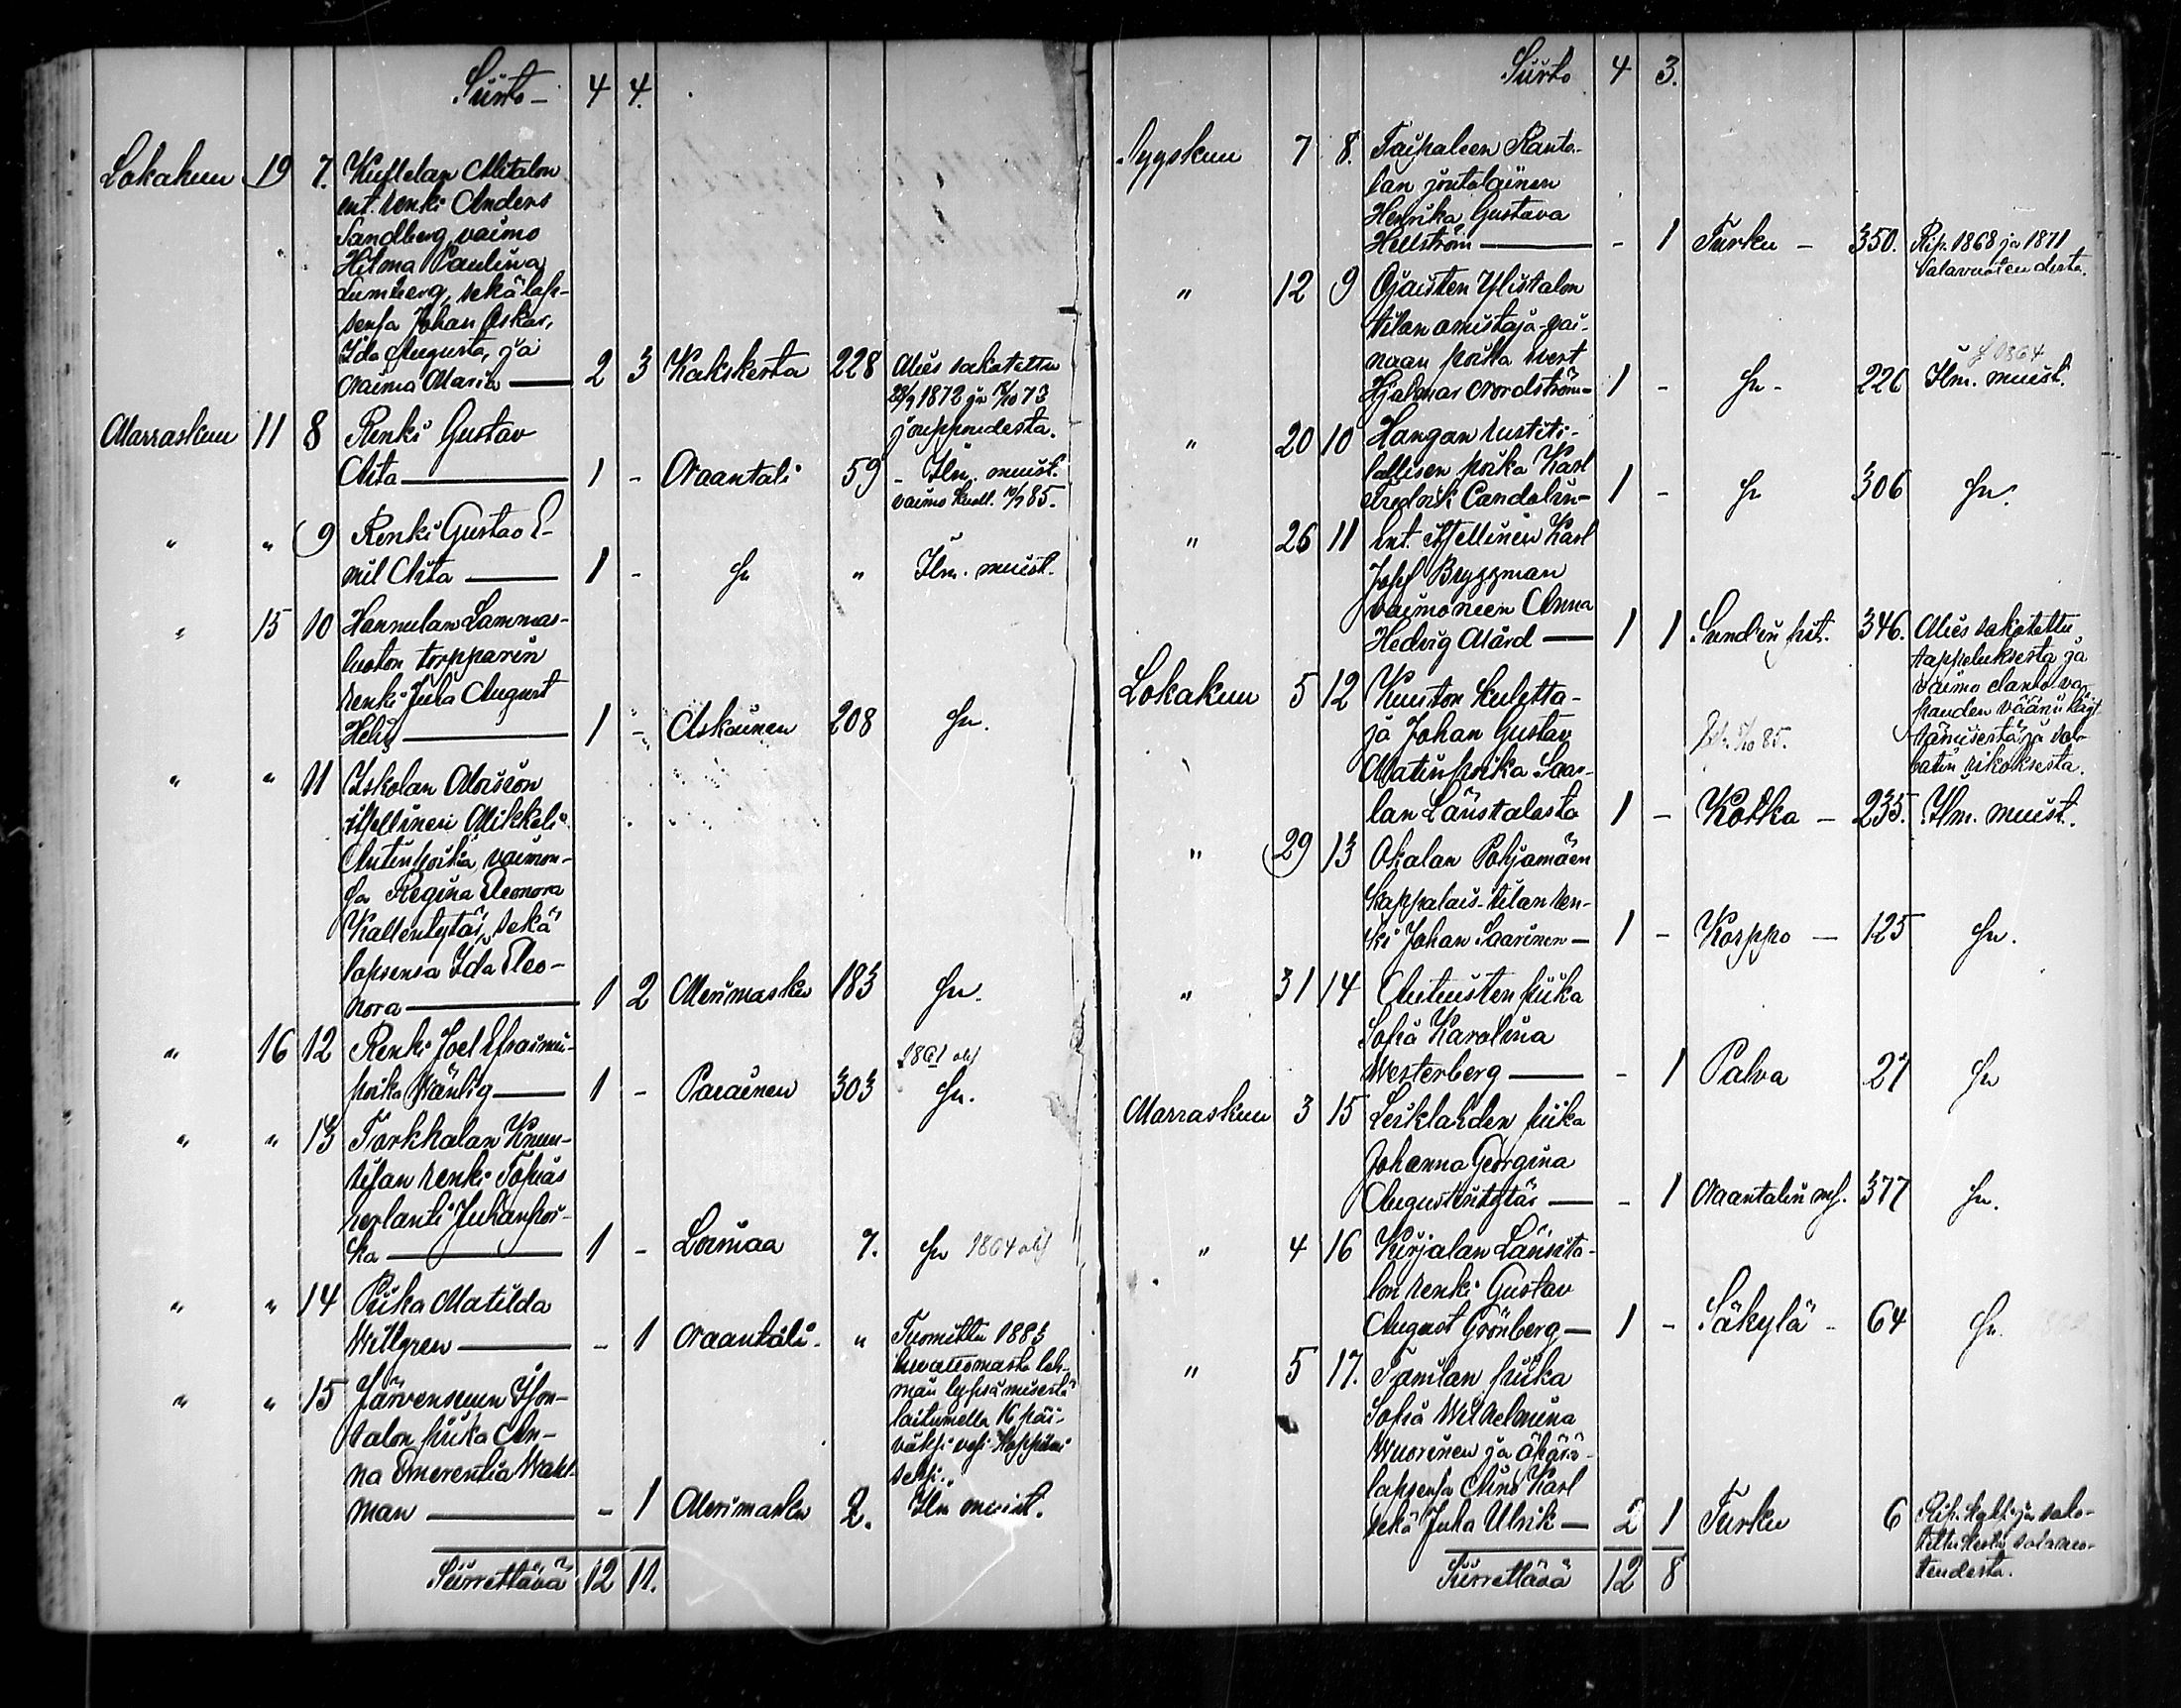 Siirto — 4 4.
Lokakuun 19 7. Kullelan Alitalon
ent. renki Anders
Sandberg, vaimo
Hilma Paulina
Lumberg, sekä lap-
sensa Johan Oskar,
Ida Augusta, ja
Naima Maria — 2 3 Kakskerta 228 Mies sakotettu
1872 ja 73
juoppoudesta.
Marraskun 11 8 Renki Gustav
Aita — 1 - Naantali 59 - Ilm. muist.
vaimo kuoll. 85.
" " 9 Renki Gustav E-
mil Aita — 1 - Sn " Ilm. muist.
" 15 10 Hannulan Lammas-
luoton torpparin
renki Juha August
Helin — 1 - Askainen 208 Sn.
" " 11 Iskolan Moision
itsellinen Mikkeli
Antinpoika, vaimon-
sa Regina Eleonora
Kallentytär, sekä
lapsensa Ida Eleo-
nora — 1 2 Merimasku 183 Sn.
" 16 12 Renki Joel Efraimin-
poika Wänlig — 1 - Parainen 303 Sn.
" " 13 Tarkkalan
renki Tobias
Herlanti Juhanpoi-
ka — 1 - Loimaa 7. Sn 1864
" " 14 Piika Matilda
Willgren — - 1 Naantali - " Tuomittu 1883
luvattomasta leh-
män lypsämisestä
laitumella 16 päi-
väksi vesi
" " 15 Järvensuun
talon piika An-
na Emerentia Wahl-
man — - 1 Merimasku 2. Ilm muist.
Siirrettävä 12 11.
Siirto 4 3.
Syyskuun 7 8. Taipaleen Ranta-
lan
Henrika Gustava
Hellström — - 1 Turku - 350. Rip. 1868 ja 1871
salavuoteudesta.
" 12 9 Ojaisten Ylistalon
tilan omistaja-vai-
naan poika
Hjalmar Nordström - 1 - Sn - 226 Ilm. muist.
1864
" 20 10 Hangan rustiti-
lallisen poika Karl
Fredrik Candolin - 1 - Sn 306 Sn.
" 26 11 Ent. itsellinen Karl
Josef Bryggman
vaimoneen Anna
Hedvig Mård — 1 1 Sundin pit. 346. Mies sakotettu
tappeluksesta ja
vaimo
väärin käyt-
tämisestä ja sab-
batin rikoksesta.
Lokakuun 5 12 Kuuston kuletta-
ja Johan Gustav
Matinpoika Saar-
lan Länstalosta 1 - Kotka - 235. Ilm. muist.
" 29 13 Okalan Pohjamäen
kappalais-tilan ren-
ki Johan Saarinen — 1 - Korppo — 125 Sn.
" 31 14 Antuisten piika
Sofia Karolina
Westerberg — - 1 Palva 21 Sn
Marraskuun 3 15 Lesiklahden piika
Johanna Georgina
Augustintytär — - 1 Naantalin ms. 377 Sn.
" 4 16 Kirjalan Länsita-
lon renki Gustav
August Grönberg — 1 - Säkylä - 64 Sn.
" 5 17. Tamilan piika
Sofia Wilhelmina
Wuorinen ja äpärä-
lapsensa Aino Karl
sekä Juha Ulrik — 2 1 Turku 6 Rip. ja sako-
tettu salavuo-
teudesta.
Siirrettävä 12 8